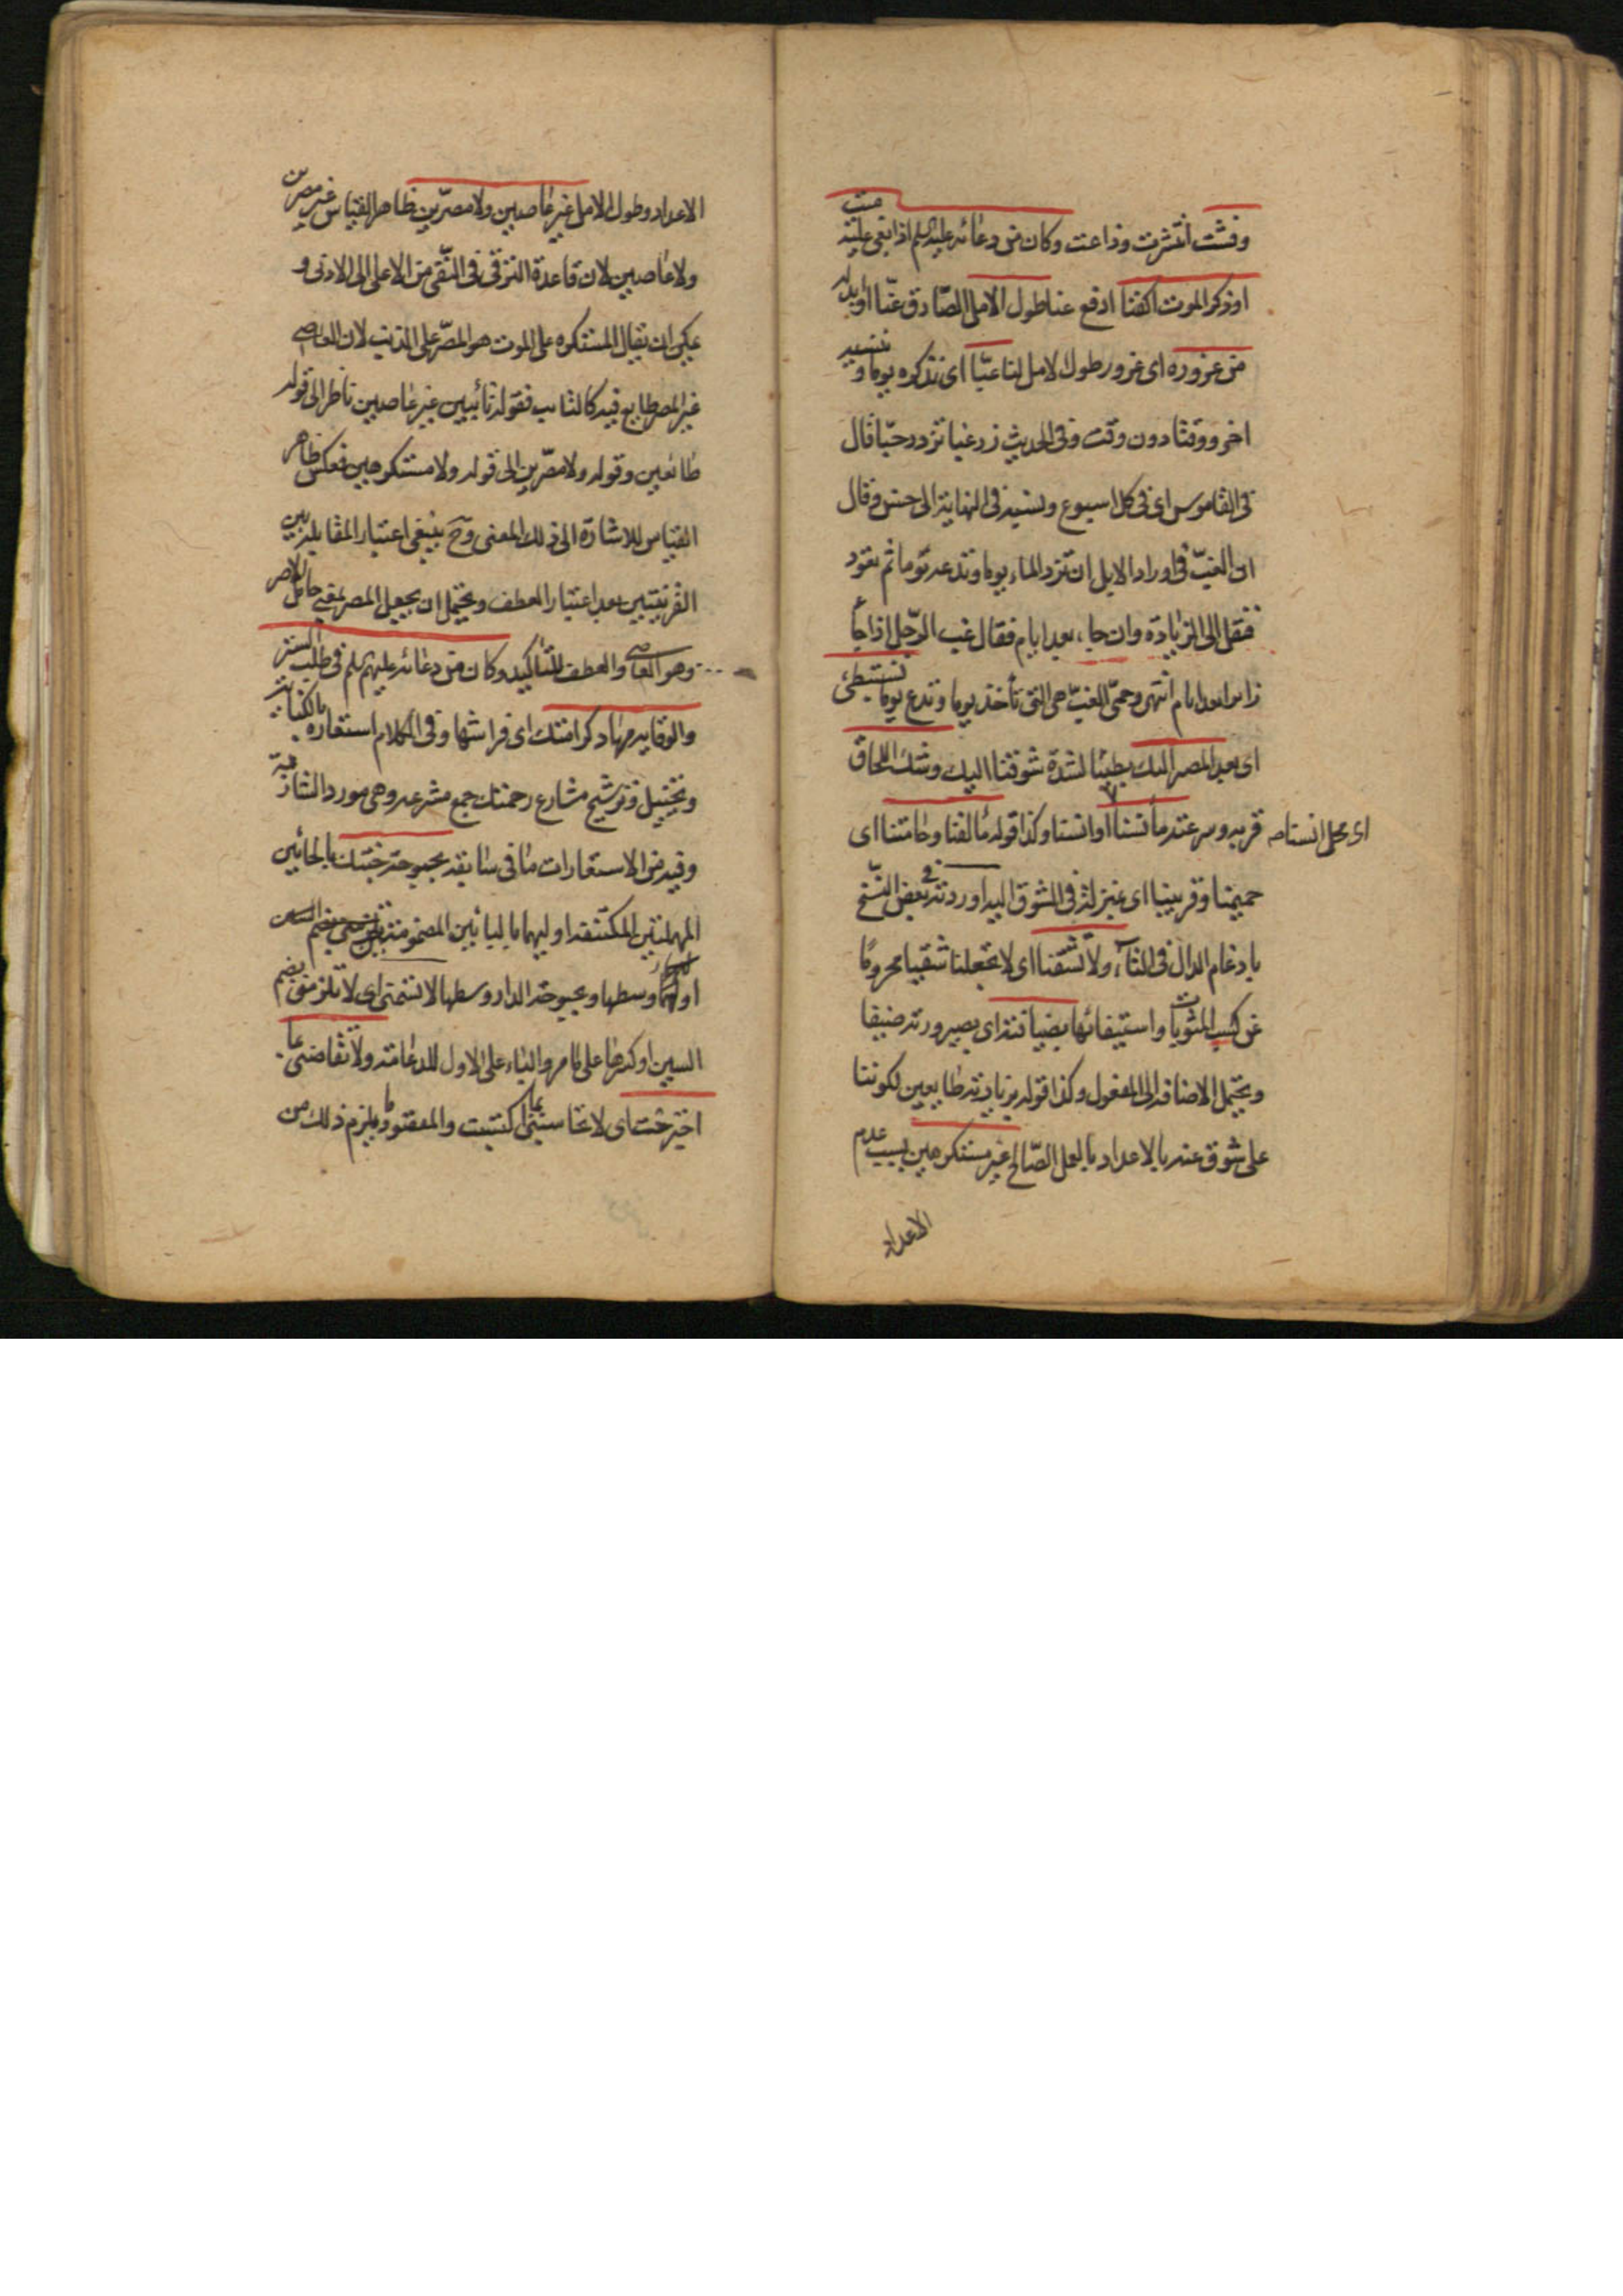 وفشت انتشرت وذاعت وكان من دعائه عليه السلم اذا نعى عليه ميت
او ذكر الموت اكفنا ادفع عنا طول الامل الصادق عنا او بدله
من غروره اى غرور طول الامل لنا غبّا اى نذكره يوما و
اخر ووقتا دون وقت وفى الحديث زر غبا تزدد حبّا قال
فى القاموس اى فى كل اسبوع ونسبه فى النهاية الى حسن وقال
ان الغبّ فى اوراد الابل ان ترد الماء يوما وتدعه يوما ثم تعود
فنقل الى الزيادة وان جاء بعد ايام فقال غب الرّجل اذا جاء
زائرا بعد ايام انتهى وحمّى الغبّ هى التى تأخذ يوما وتدع يوما نستبطئ
اى بعد المصير اليك بطيئا لشدة شوقنا اليك وشك اللحاق
قربه وسرعته مأنسنا او انسنا وكذا قوله مالفنا وحامتنا اى
اى محل انسنا صه
حميمنا وقريبنا اى بمنزلته فى الشوق اليه اوردته فى بعض النّسخ
بادغام الدال فى التاء ولا تشقنا اى لا تجعلنا شقيا محروما
عن كسب المثوبات واستيفائها بضيافته اى بصيرورته ضيفا
ويحتمل الاضافة الى المفعول وكذا قوله بزيارته طايعين لكوننا
على شوق عنه بالاعداد بالعمل الصّالح غير مستكرهين بسبب عدم
الاعداد
الاعداد وطول الامل غير عاصين ولا مصرّين ظاهر القياس غير مصرين
ولا عاصين لان قاعدة الترقى فى النّفى من الاعلى الى الادنى و
يمكن ان يقال المستكره على الموت هو المصّر على الذنب لان العاصى
غير المصر طايع فيه كالتائب فقوله تائبين غير عاصين ناظر الى قوله
طائعين وقوله ولا مصّرين الى قوله ولا مستكرهين فعكس ظاهر
القياس للاشارة الى ذلك المعنى وح ينبغى اعتبار المقابلة بين
القرينتين بعد اعتبار العطف ويحتمل ان يجعل المصر بمعنى حامل الاصر
وهو العاصى والعطف للتاكيد وكان من دعائه عليه السلم فى طلب الستر
والوقاية مهاد كرامتك اى فراشها وفى الكلام استعارة بالكناية
وتخييل وترشيح مشارع رحمتك جمع مشرعه وهى مورد الشاربة
وفيه من الاستعارات ما فى سابقه بحبوحة جنتك بالحائين
المهملتين المكتنفه اوليهما بالبائين المضمومتين بضم السين
اولهما وسطها وبحبوحة الدار وسطها لا تسمنى اى لا تلزمنى بضم
السين او كسرها على ما مر والباء على الاول للدعامة ولا تقاصنى بما
اجترحت اى لا تحاسبنى بما اكتسبت والمعقود ما يلزم ذلك من